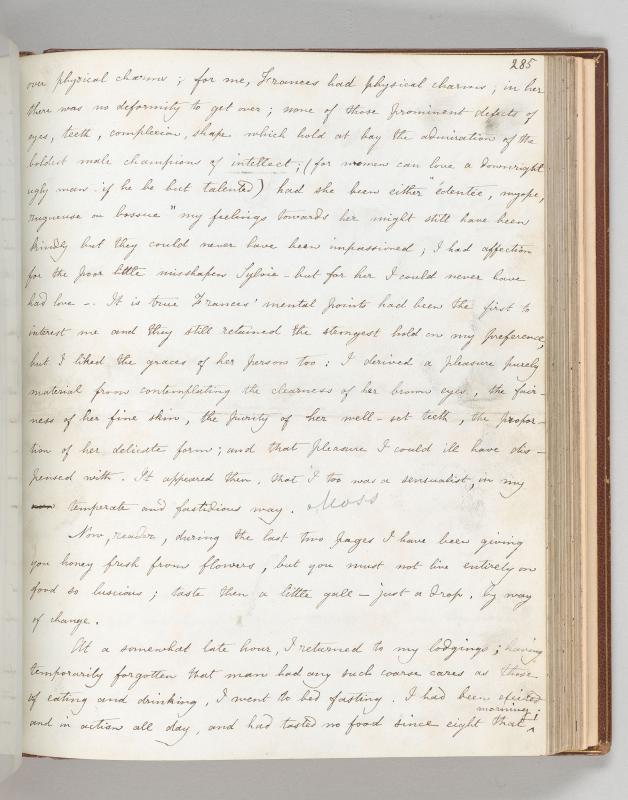 285
over physical charms ; for me, Frances had physical charms ; in her
there was no deformity to get over ; none of those prominent defects of
eyes, teeth, complexion, shape which hold at bay the admiration of the
boldest male champions of intellect ; (for women can love a downright
ugly man if he be but talented) had she been either "édentée, myope,
rugueuse ou bossue" my feelings towards her might still have been
kindly but they could never have been impassioned ; I had affection
for the poor little misshapen Sylvie - but for her I could never have
had love -. It is true Frances' mental points had been the first to
interest me and they still retained the strongest hold on my preference,
but I liked the graces of her person too : I derived a pleasure purely
material from contemplating the clearness of her brown eyes, the fair-
ness of her fine skin, the purity of her well-set teeth, the propor-
tion of her delicate form ; and that pleasure I could ill have dis-
pensed with. It appeared then, that I too was a sensualist, in my
temperate and fastidious way. Moss
Now, reader, during the last two pages I have been giving
you honey fresh from flowers, but you must not live entirely on
food so luscious ; taste then a little gall - just a drop, by way
of change.
At a somewhat late hour, I returned to my lodgings ; having
temporarily forgotten that man had any such coarse cares as those
of eating and drinking, I went to bed fasting. I had been excited
and in action all day, and had tasted no food since eight that morning ;